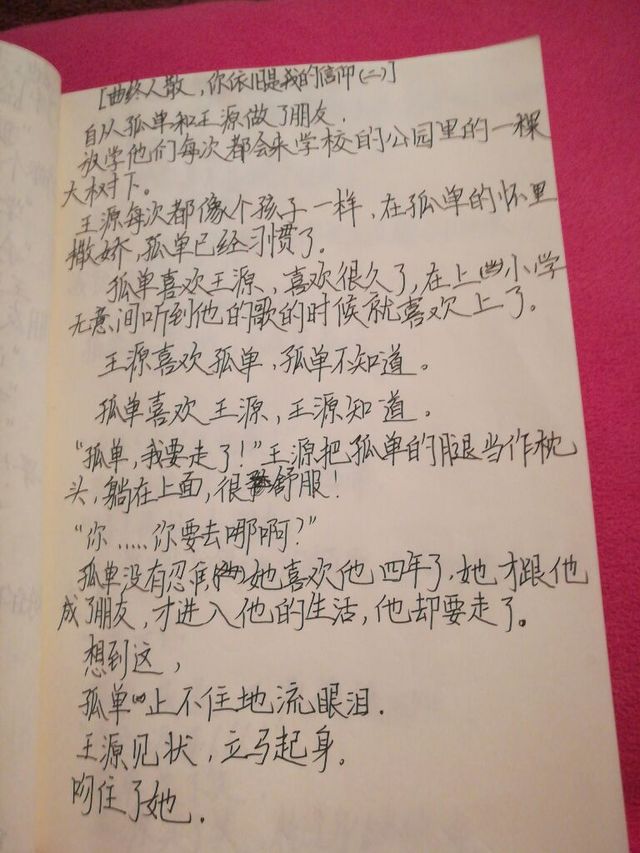 [曲终人散，你依旧是我的信仰(二)]
自从孤单和王源做了朋友.
放学他们每次都会来学校的公园里的一棵
大树下。
王源每次都像个孩子一样，在孤单的怀里
撒娇，孤单已经习惯了。
孤单喜欢王源，喜欢很久了，在上小学
无意间听到他的歌的时候就喜欢上了。
王源喜欢孤单，孤单不知道。
孤单喜欢王源，王源知道。
“孤单，我要走了！”王源把孤单的腿当作枕
头，躺在上面，很舒服！
“你.....你要去哪啊？”
孤单没有忍住她喜欢他四年了，她才跟他
成了朋友，才进入他的生活，他却要走了。
想到这，
孤单止不住地流眼泪.
王源见状，立马起身。
吻住了她.